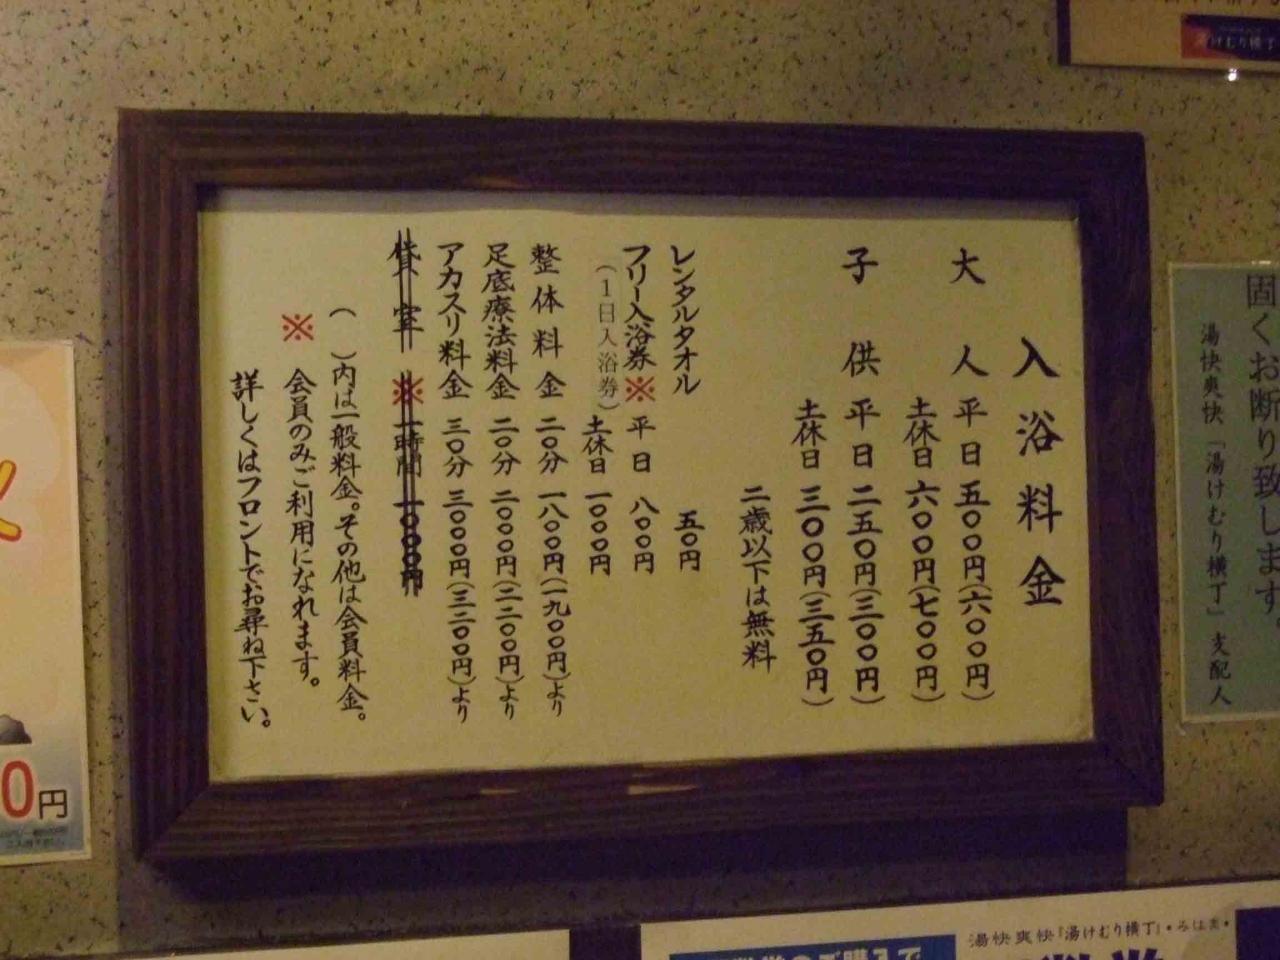 入浴料金
大人 平日 五〇〇円(六〇〇円)
土休日 六〇〇円(七〇〇円)
子供 平日 二五〇円(三〇〇円)
土休日 三〇〇円(三五〇円)
二歳以下は無料
レンタルタオル 五〇円
フリー入浴券※ 平日 八〇〇円
(1日入浴券) 土休日 一〇〇〇円
整体料金 二〇分 一八〇〇円(一九〇〇円)より
足底療法料金 二〇分 二〇〇〇円(二二〇〇円)より
アカスリ料金 三〇分 三〇〇〇円(三二〇〇円)より
貸室 ※ 一時間 一〇〇〇円
( )内は一般料金。その他は会員料金。
※ 会員のみご利用になれます。
詳しくはフロントでお尋ね下さい。
固くお断り致します。
湯快爽快「湯けむり横丁」支配人
湯けむり横丁
0円
湯快爽快『湯けむり横丁』・みはま・
のご購入で